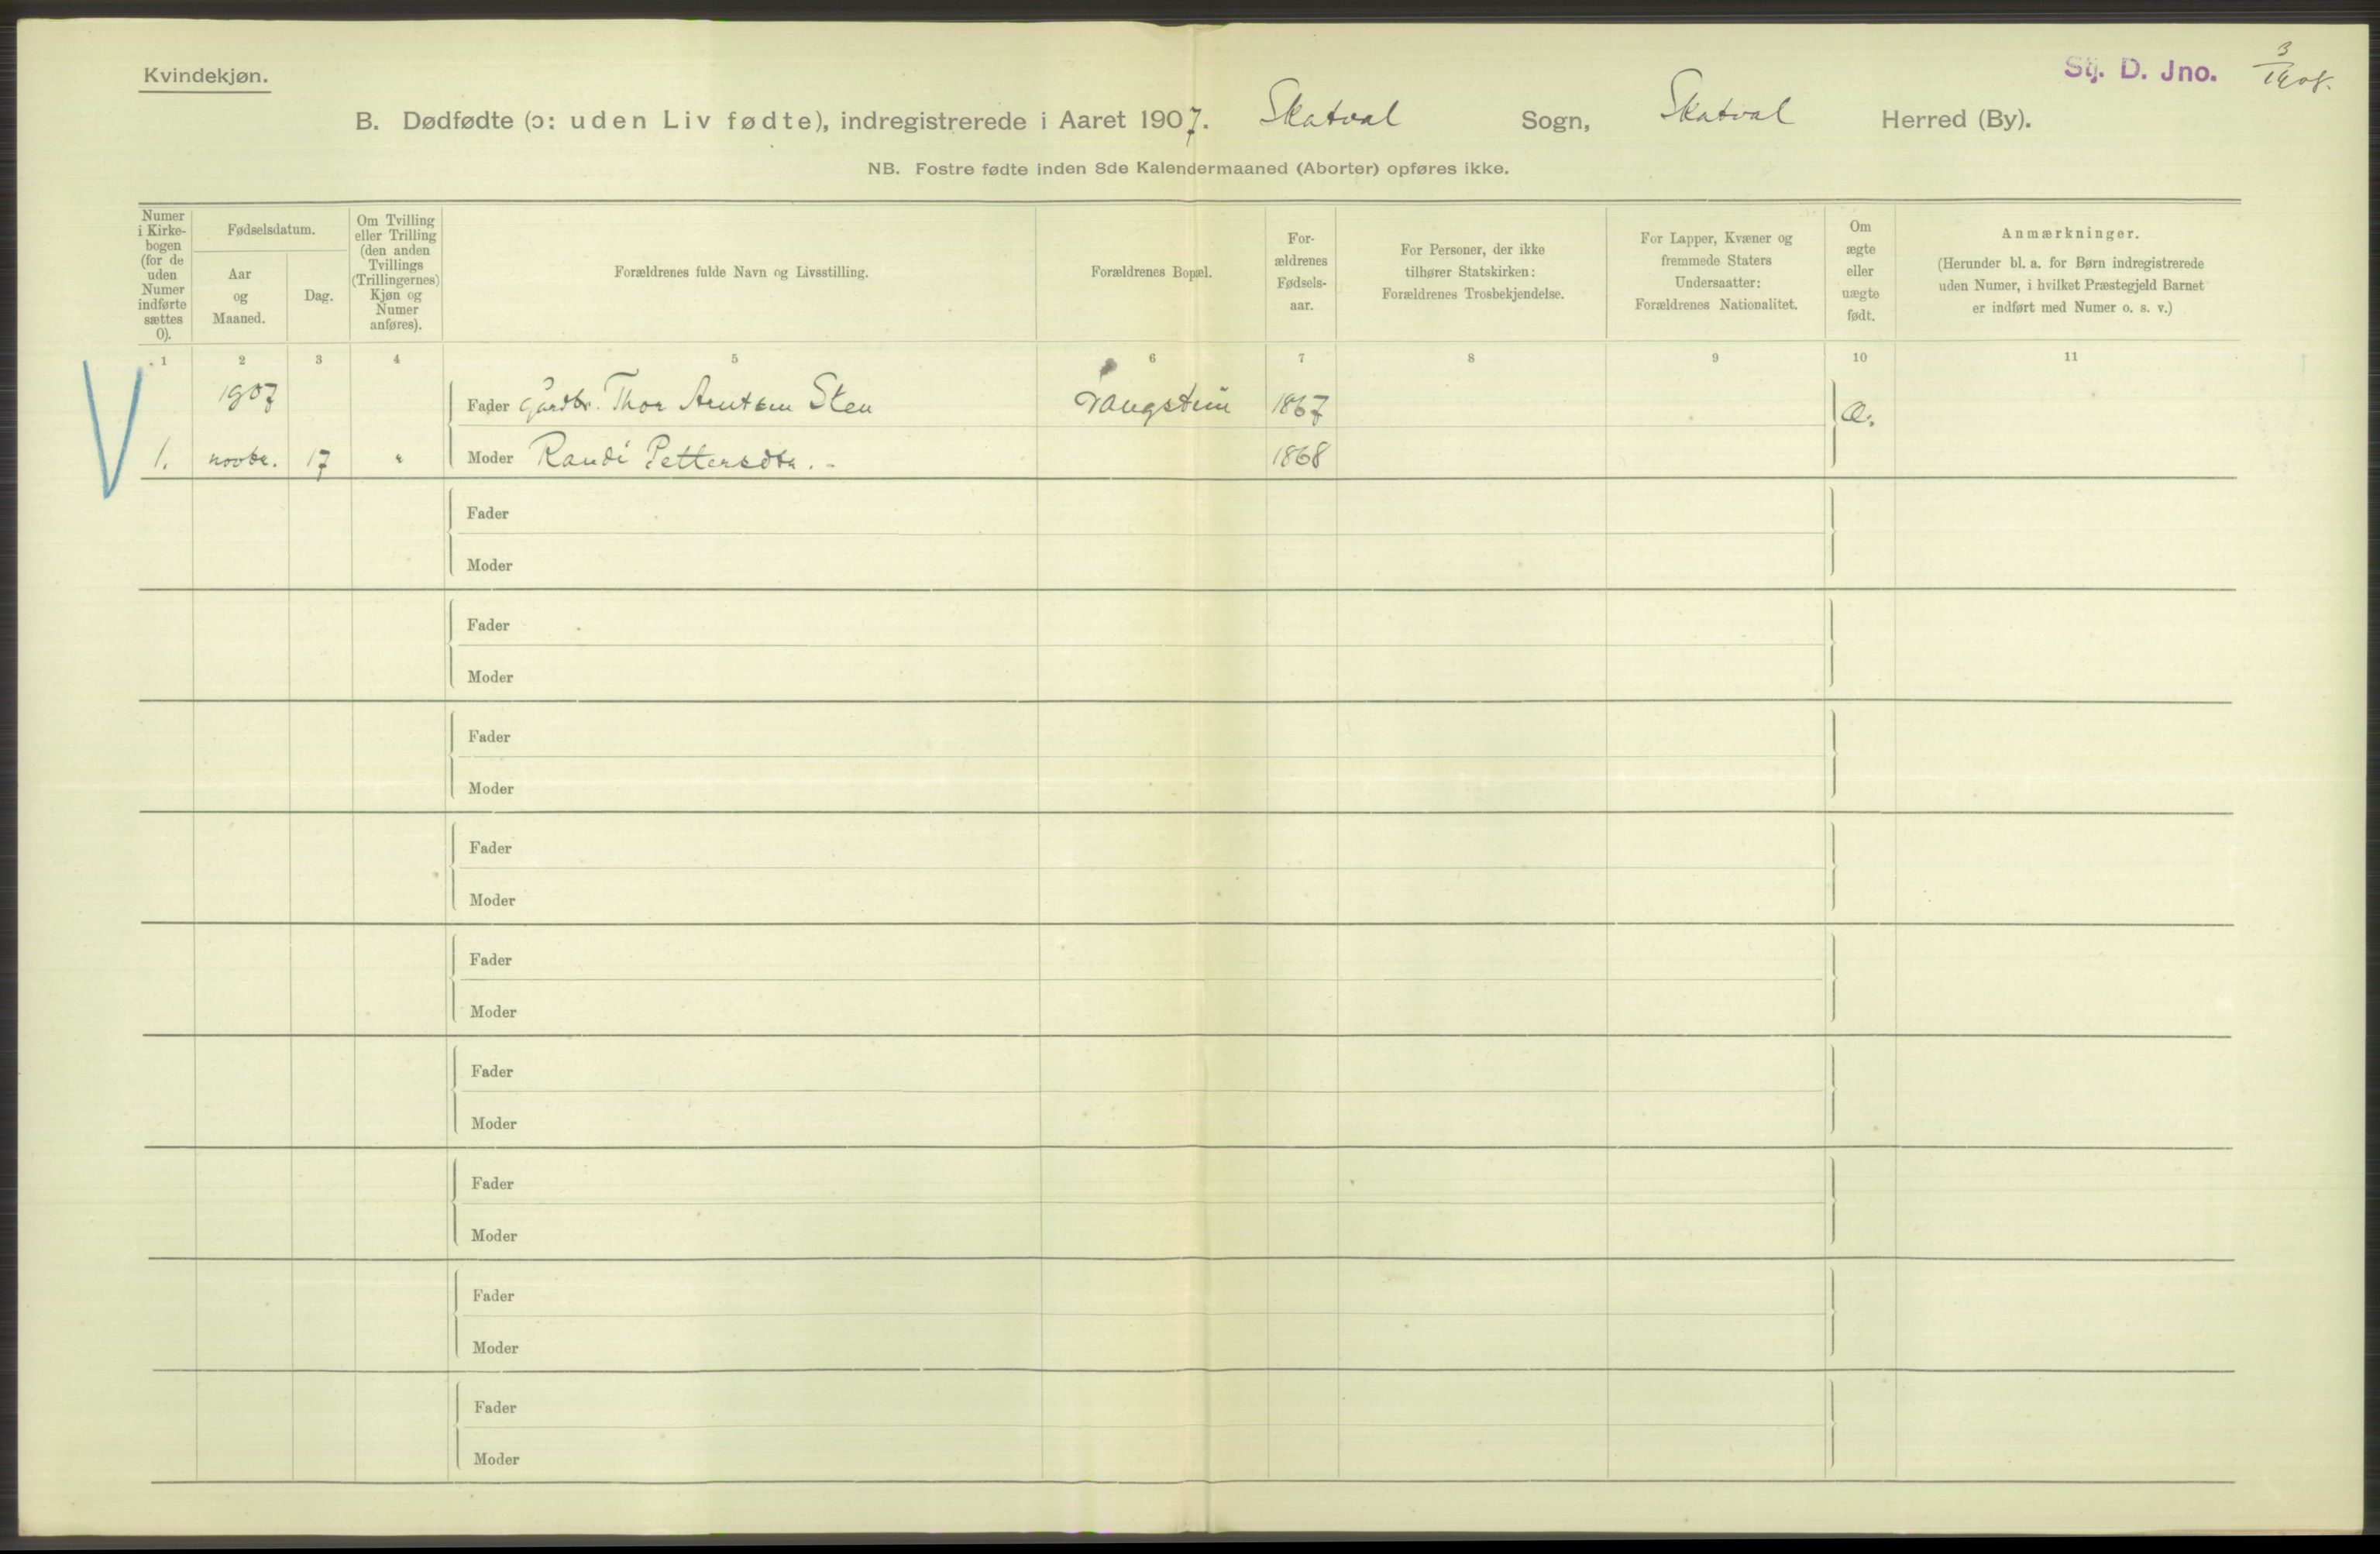 Kvindekjøn.
Stj. D. Jno. 3/1908.
B. Dødfødte (ɔ: uden Liv fødte), indregistrerede i Aaret 1907. Skatval Sogn, Skatval Herred (By).
NB. Fostre fødte inden 8de Kalendermaaned (Aborter) opføres ikke.
Numer
i Kirke-
bogen
(for de
uden
Numer
indførte
sættes
0).
Fødselsdatum.
Aar
og
Maaned.
Dag.
Om Tvilling
eller Trilling
(den anden
Tvillings
(Trillingernes)
Kjøn og
Numer
anføres).
Forældrenes fulde Navn og Livsstilling.
Forældrenes Bopæl.
For-
ældrenes
Fødsels-
aar.
For Personer, der ikke
tilhører Statskirken:
Forældrenes Trosbekjendelse.
For Lapper, Kvæner og
fremmede Staters
Undersaatter:
Forældrenes Nationalitet.
Om
ægte
eller
uægte
født.
Anmærkninger.
(Herunder bl. a. for Børn indregistrerede
uden Numer, i hvilket Præstegjeld Barnet
er indført med Numer o. s. v.)
1 2 3 4 5 6 7 8 9 10 11
1907 Fader Gaardbr. Thor Arntsen Sten 1867 Æ.
1. novbr. 17 " Moder Randi Pettersdtr. - 1868
Fader
Moder
Fader
Moder
Fader
Moder
Fader
Moder
Fader
Moder
Fader
Moder
Fader
Moder
Fader
Moder
Fader
Moder